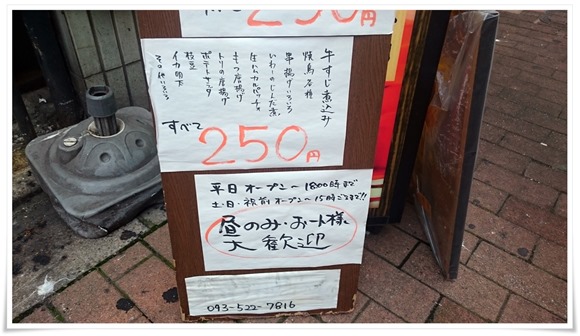 250円
牛すじ煮込み
焼鳥各種
串揚げいろいろ
いわしのじんだ煮
生ハムカルパッチョ
もつ唐揚げ
トリの唐揚げ
ポテトサラダ
枝豆
イカ団子
その他いろいろ
すべて
250円
平日 オープン〜1800時まで
土・日・祝前 オープン〜15時ごろまで!!
昼のみ・お一人様
大歓迎
093-522-7816